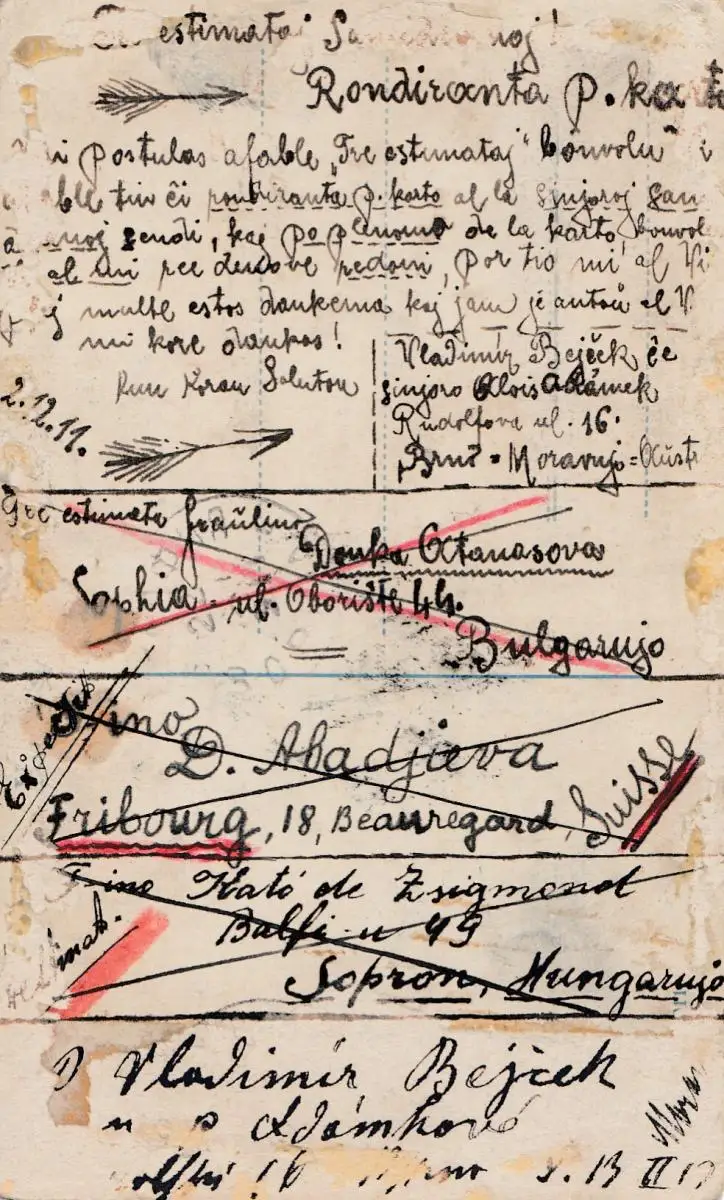 Tre estimataj
Rondiranta p. ka
mi postulas afable "Tre estimataj" bonvolu
ĉi rondiranta p. karto al la sinjoroj
sendi, kaj po plenome de la karto, bonvol
al mi ree denove redoni, por tio mi al Vi
multe estos dankema kaj jam je antaŭ al V
mi kore dankas!
Vladimír Bejček ĉe
sinjoro Alois Adámek
Rudolfova ul. 16.
Brno = Moravujo = Aŭst
2.12.11.
Tre estimata fraŭlino
Donka Atanasova
Sophia - ul. Oborište 44.
Bulgarujo
ino
D. Abadjieva
Fribourg, 18, Beauregard, Suisse
F-ino Kató de Zsigmond
Balfi u 49
Sopron, Hungarujo
Vladimír Bejček
u p Adámkové
16